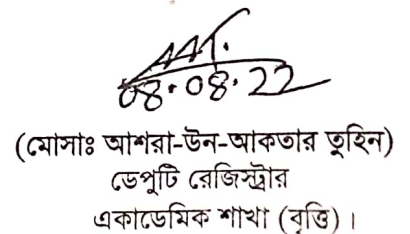 08.08.22
(মোসাঃ আশরা-উন-আকতার তুহিন)
ডেপুটি রেজিস্ট্রার
একাডেমিক শাখা (বৃত্তি)।